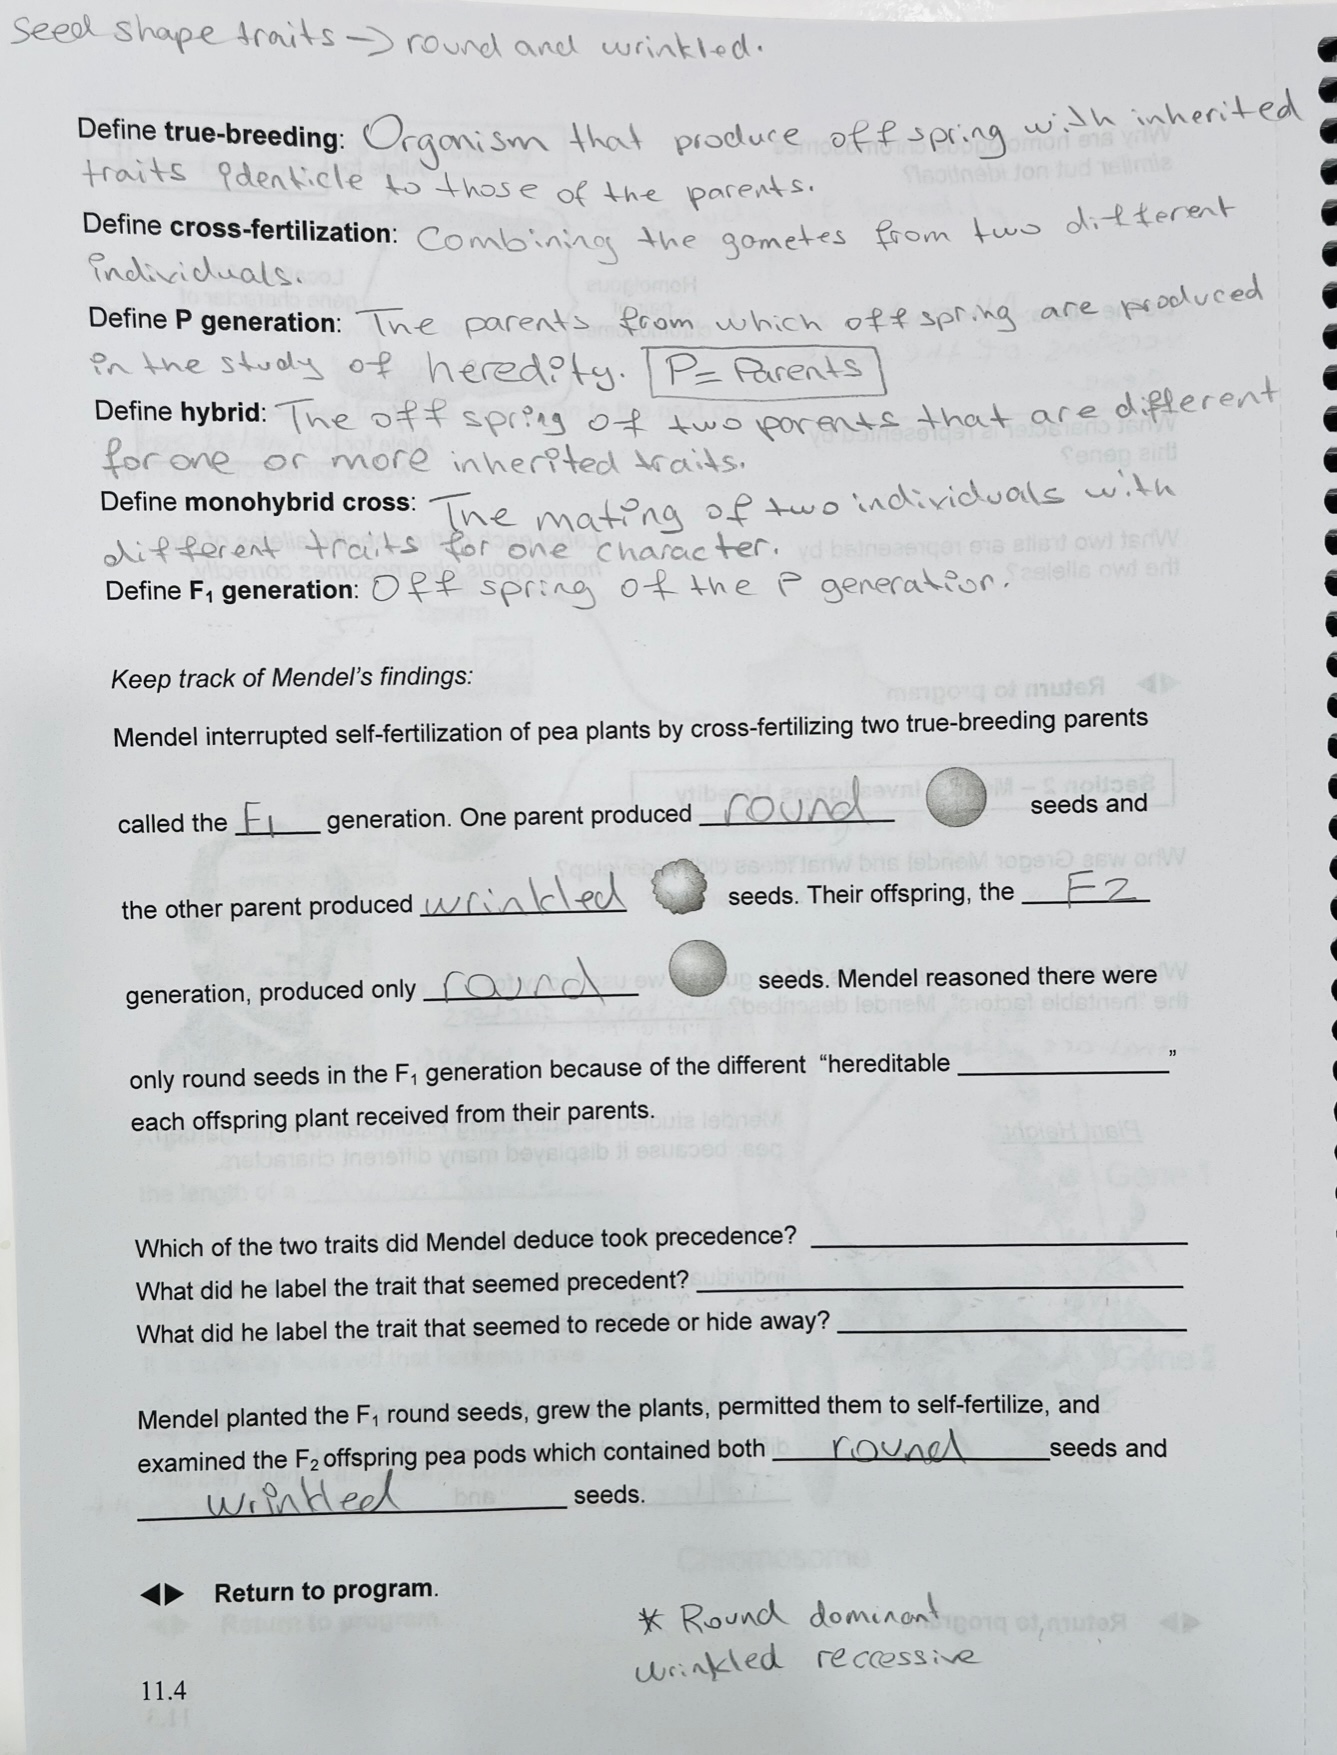 Seed shape traits → round and wrinkled.
Define true-breeding: Organism that produce offspring with inherited
traits identicle to those of the parents.
Define cross-fertilization: Combining the gametes from two different
individuals.
Define P generation: The parents from which offspring are produced
in the study of heredity. P = Parents
Define hybrid: The offspring of two parents that are different
for one or more inherited traits.
Define monohybrid cross: The mating of two individuals with
different traits for one character.
Define F₁ generation: Offspring of the P generation.
Keep track of Mendel's findings:
Mendel interrupted self-fertilization of pea plants by cross-fertilizing two true-breeding parents
called the F1 generation. One parent produced round seeds and
the other parent produced wrinkled seeds. Their offspring, the F2
generation, produced only round seeds. Mendel reasoned there were
only round seeds in the F₁ generation because of the different "hereditable ____________"
each offspring plant received from their parents.
Which of the two traits did Mendel deduce took precedence? ____________
What did he label the trait that seemed precedent? ____________
What did he label the trait that seemed to recede or hide away? ____________
Mendel planted the F₁ round seeds, grew the plants, permitted them to self-fertilize, and
examined the F₂ offspring pea pods which contained both round seeds and
wrinkled seeds.
◀▶ Return to program.
* Round dominant
wrinkled reccessive
11.4